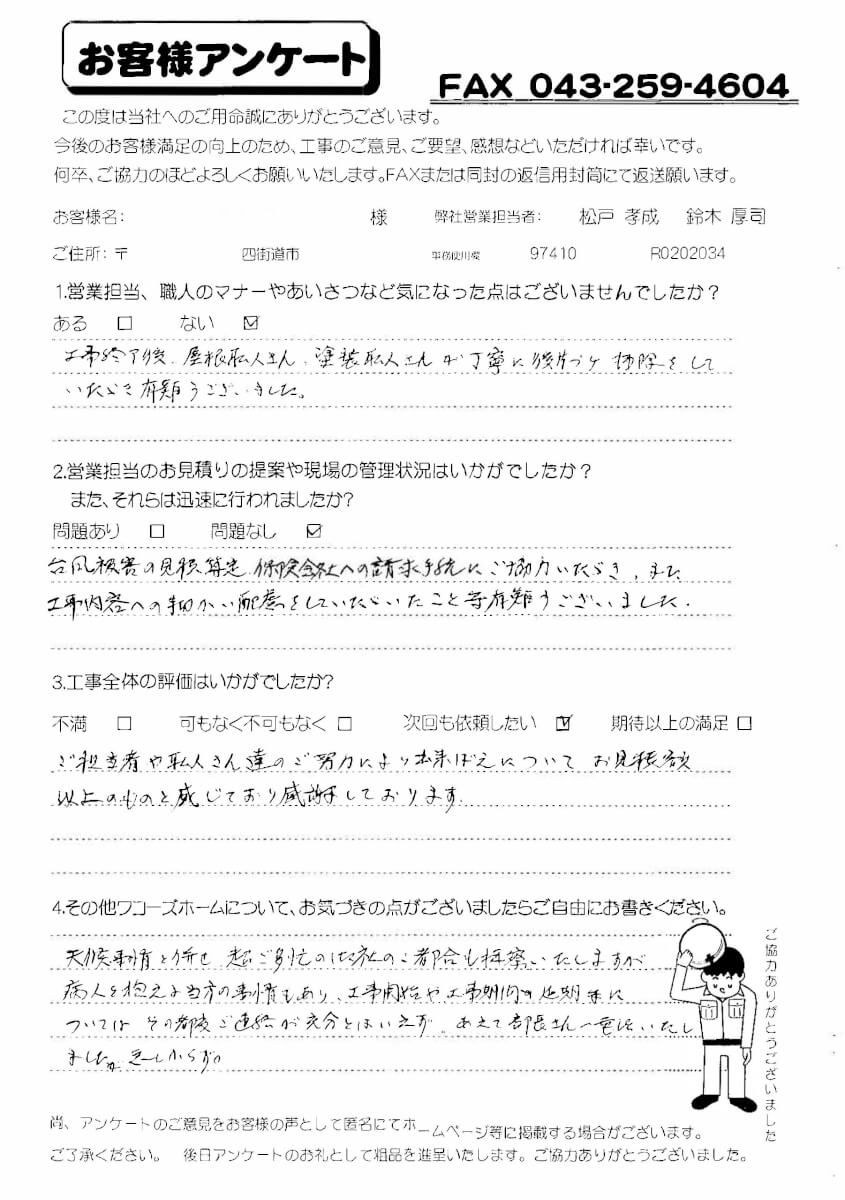 お客様アンケート
FAX 043-259-4604
この度は当社へのご用命誠にありがとうございます。
今後のお客様満足の向上のため、工事のご意見、ご要望、感想などいただければ幸いです。
何卒、ご協力のほどよろしくお願いいたします。FAXまたは同封の返信用封筒にて返送願います。
お客様名: 様 弊社営業担当者: 松戸 孝成 鈴木 厚司
ご住所: 〒 四街道市 事務使用欄 97410 R0202034
1.営業担当、職人のマナーやあいさつなど気になった点はございませんでしたか?
ある □ ない ☑
工事終了後、屋根職人さん、塗装職人さんが丁寧に後片づけ掃除をして
いただき有難うございました。
2.営業担当のお見積りの提案や現場の管理状況はいかがでしたか?
また、それらは迅速に行われましたか?
問題あり □ 問題なし ☑
台風被害の見積算定、保険会社への請求手続にご協力いただき、また
工事内容への細かい配慮をしていただいたこと等有難うございました。
3.工事全体の評価はいかがでしたか?
不満 □ 可もなく不可もなく □ 次回も依頼したい ☑ 期待以上の満足 □
ご担当者や職人さん達のご努力により出来ばえについてお見積額
以上のものと感じており感謝しております。
4.その他ワコーズホームについて、お気づきの点がございましたらご自由にお書きください。
天候事情と併せ、超ご多忙の御社のご都合も拝察いたしますが
病人を抱える当方の事情もあり、工事開始や工事期間の延期等に
ついてはその都度ご連絡が充分とはいえず、あえて部長さんへ電話いたし
ました。悪しからず。
ご協力ありがとうございました
尚、アンケートのご意見をお客様の声として匿名にてホームページ等に掲載する場合がございます。
ご了承ください。 後日アンケートのお礼として粗品を進呈いたします。ご協力ありがとうございました。